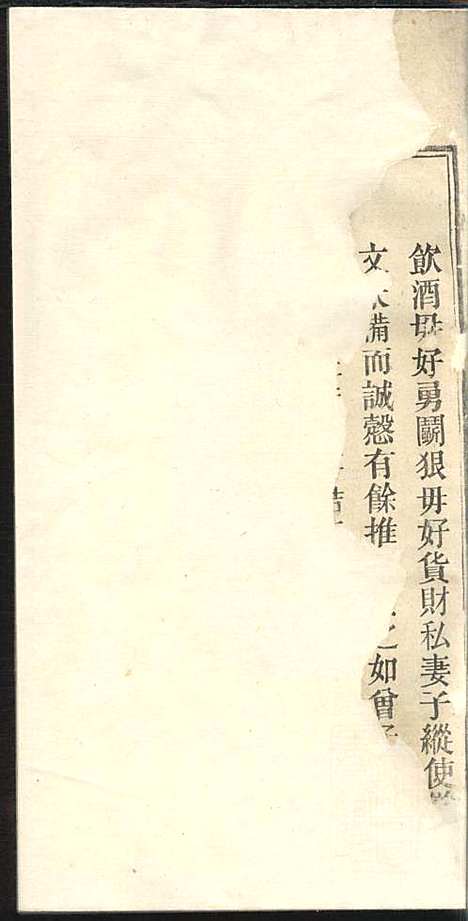 飲酒毋好勇鬭狠毋好貨財私妻子縱使
文備而誠慤有餘推之如曾子